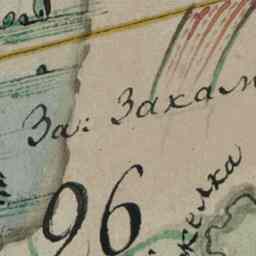 За: Захам
96
желка